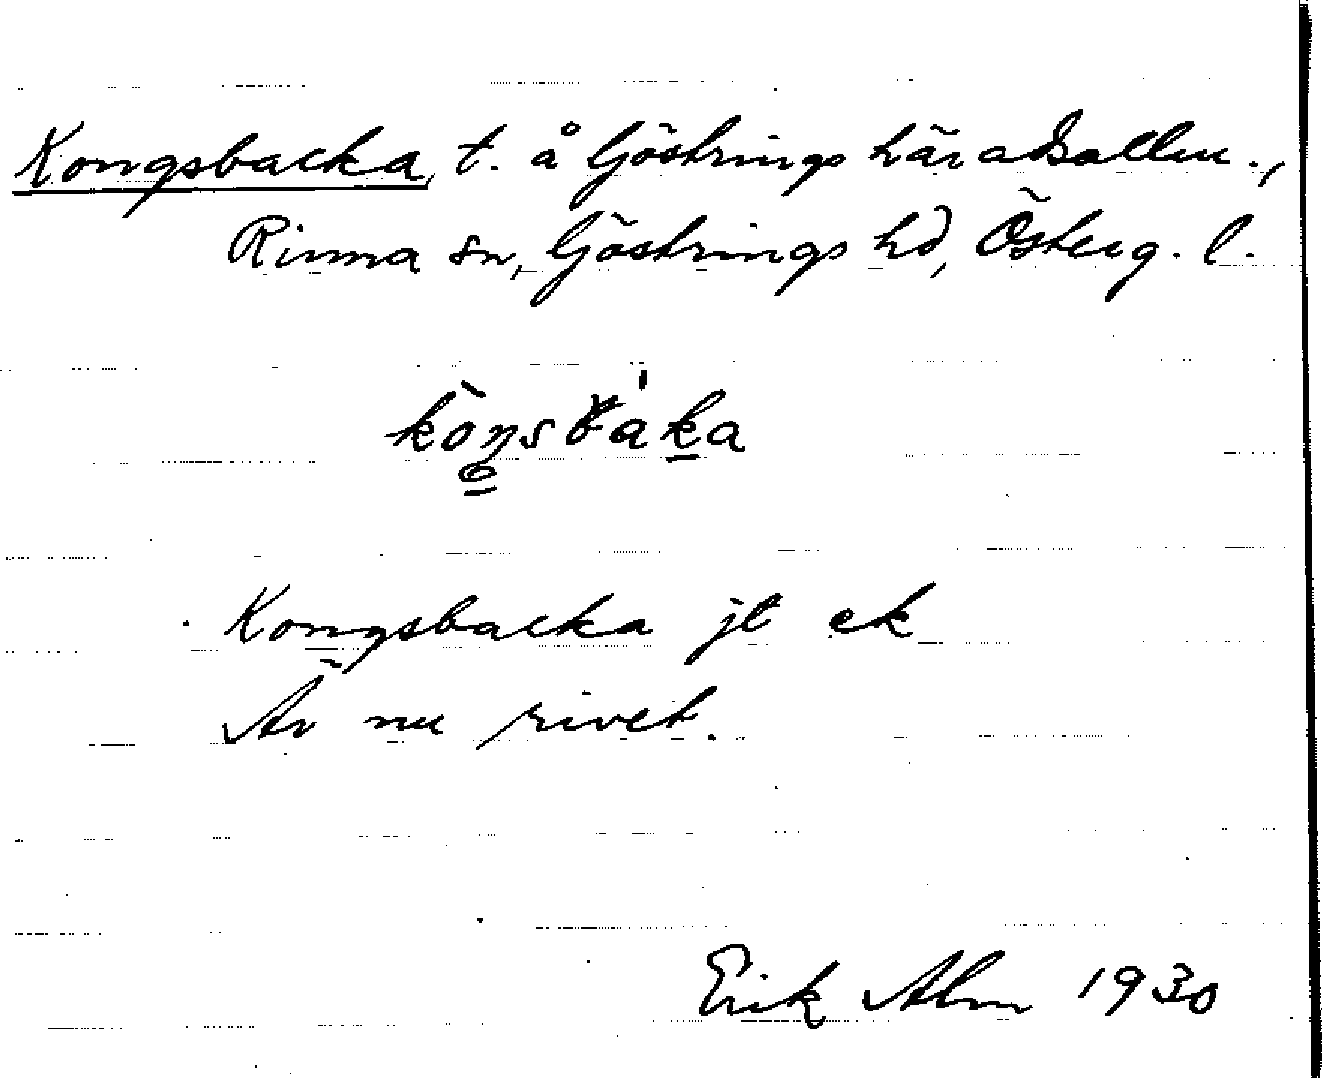 Kongsbacka, t. å Göstrings häradsallm.,
Rinna sn, Göstrings hd, Österg. l.
Kongsbacka jt ek
Är nu rivet.
Erik Alm 1930